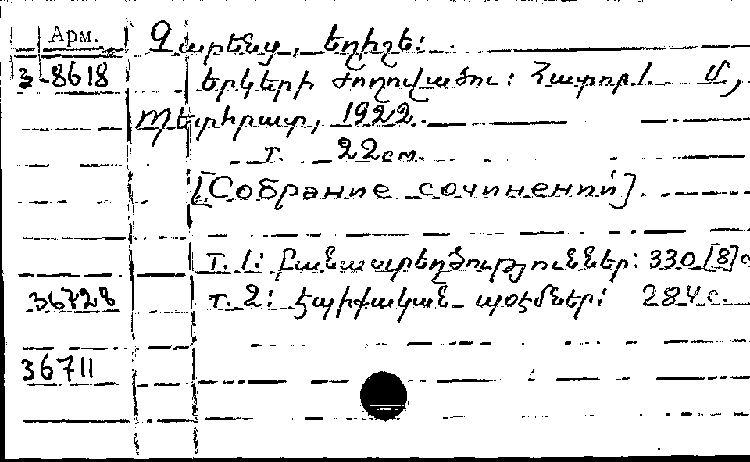 Арм.
Չարենց, Եղիշե:
3-8618 Երկերի Ժողովածու: Հատոր 1. Մ.,
Պետհրատ, 1922.
т. 22 см.
[Собрание сочинений].
т. 1: Բանաստեղծություններ: 330 [8] с
36728 т. 2: Էպիքական պօէմներ: 284 с.
36711